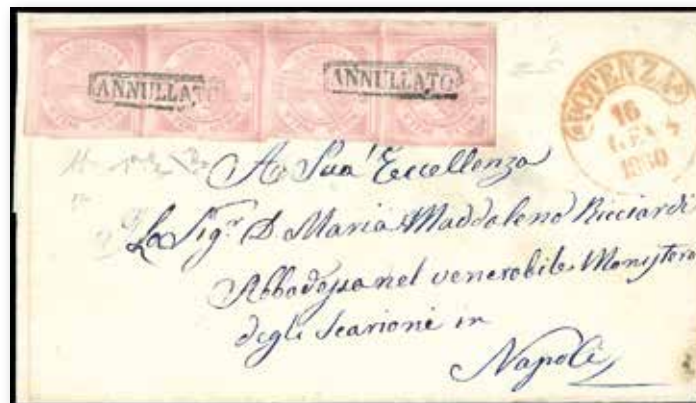 ANNULLATO ANNULLATO
POTENZA
16
GEN
1860
A Sua Eccellenza
La Sig.ra D. Maria Maddalena Ricciardi
Abbadessa nel venerabile Monistero
degli Scarioni in
Napoli